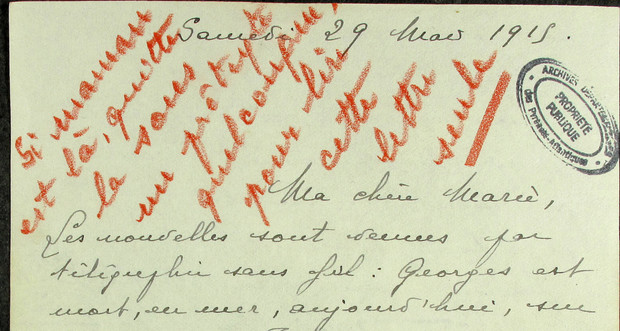 Samedi 29 Mai 1915.
Si maman
est là, quitte
la sous
un prétexte
quelconque,
pour lire
cette
lettre
seule
ARCHIVES DÉPARTEMENTALES
PROPRIÉTÉ
PUBLIQUE
des Pyrénées-Atlantiques
Ma chère Marie,
Les nouvelles sont venues par
télégraphie sans fil : Georges est
mort, en mer, aujourd'hui, sur